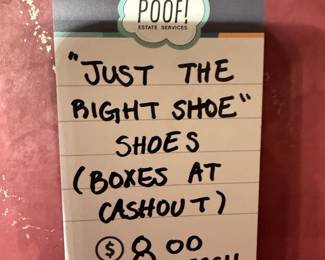 POOF!
ESTATE SERVICES
"JUST THE
RIGHT SHOE"
SHOES
(BOXES AT
CASHOUT)
$ 8.00